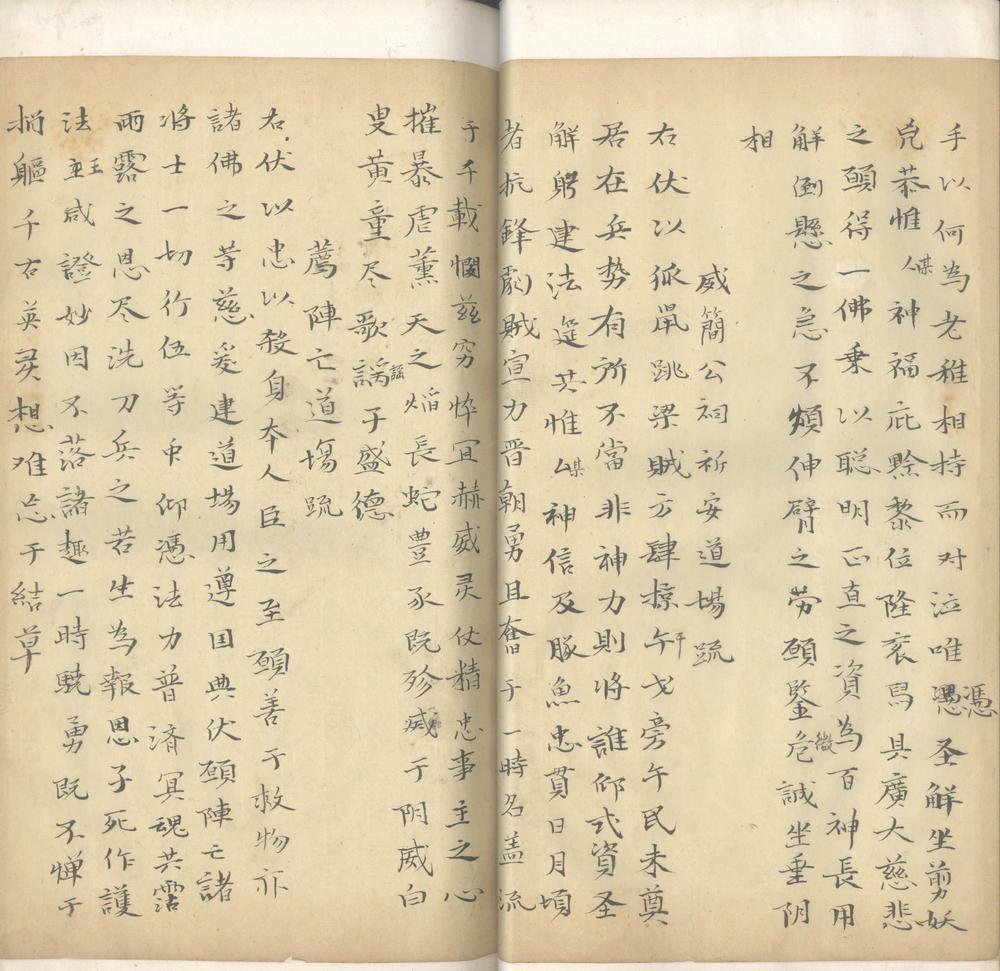 手以何為老稚相持而对泣唯憑圣解坐剪妖
兇恭惟某人神福庇黔黎位隆衮舄具廣大慈悲
之願得一佛乗以聪明正直之資為百神長用
解倒懸之急不煩伸臂之劳願鑒危誠坐垂阴
相
威簡公祠祈安道場疏
右伏以狐鼠跳梁賊方肆掠午干戈旁午民未奠
居在兵势有所不當非神力則将誰仰式資圣
解躬建法筵共惟某人神信及豚魚忠貫日月頃
者抗鋒劇賊宣力晋朝勇且奮于一時名盖流
于千載憫茲穷悴宜赫威灵仗精忠事主之心
摧暴虐薰天之焰長蛇豊豕既殄烕于阴威白
叟黄童尽歌謡子盛德
薦陣亡道場疏
右伏以忠以殺身本人臣之至願善于救物亦
諸佛之等慈爰建道場用遵国典伏願陣亡諸
将士一切行伍等申仰憑法力普济冥魂共霑
雨露之恩尽洗刀兵之若生為報恩子死作護
法王咸證妙因不落諸趣一時驍勇既不惮于
捐軀千古英灵想难忘于結草